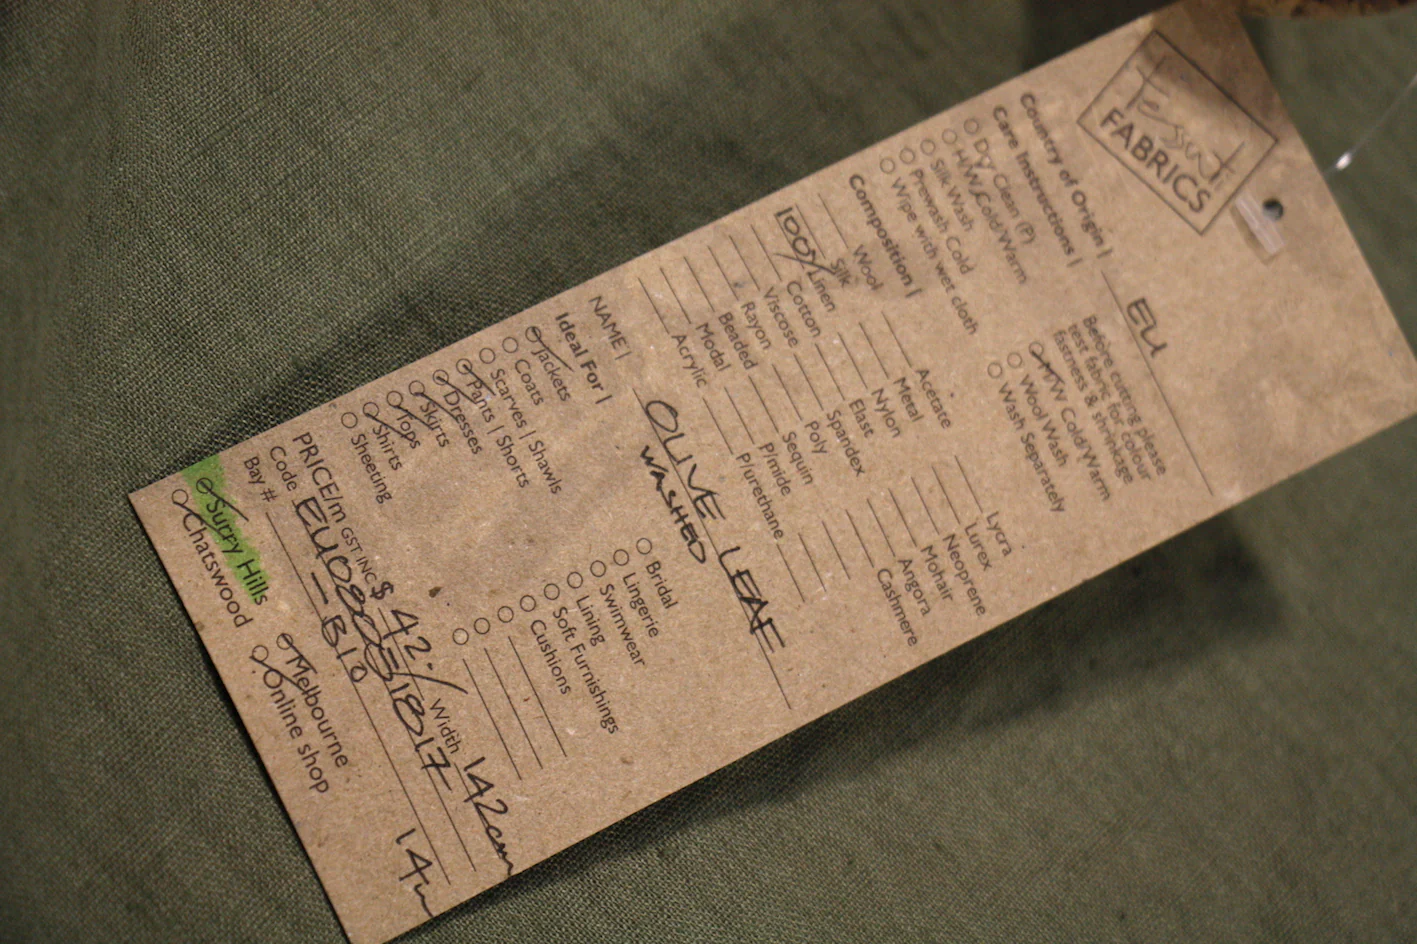 Tessuti
FABRICS
Country of Origin | EU
Care Instructions |
Before cutting please
test fabric for colour
fastness & shrinkage
Dry Clean (P)
H/W Cold/Warm
Silk Wash
Prewash Cold
Wipe with wet cloth
M/W Cold/Warm
Wool Wash
Wash Separately
Composition |
Wool
Silk
100% Linen
Cotton
Viscose
Rayon
Beaded
Modal
Acrylic
Acetate
Metal
Nylon
Elast
Spandex
Poly
Sequin
P/mide
P/urethane
Lycra
Lurex
Neoprene
Mohair
Angora
Cashmere
NAME | OLIVE LEAF
WASHED
Ideal For |
Jackets
Coats
Scarves | Shawls
Pants | Shorts
Dresses
Skirts
Tops
Shirts
Sheeting
Bridal
Lingerie
Swimwear
Lining
Soft Furnishings
Cushions
PRICE/m GST INC $ 42.- Width 142cm
Code
Bay # — B10
Surry Hills
Chatswood
Melbourne
Online shop